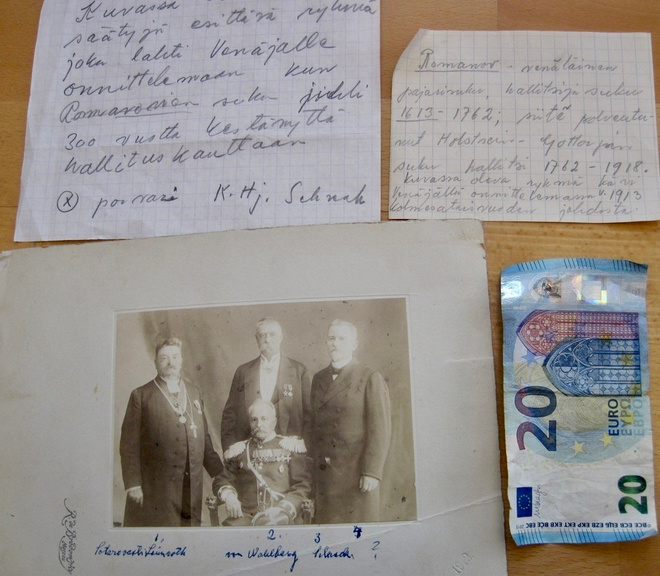 Kuvassa
säätyjä esittävä ryhmä
joka lähti Venäjälle
onnittelemaan kun
Romanovien suku juhli
300 vuotta kestänyttä
hallituskauttaan
x porvari K. Hj. Schnak
Romanov - venäläinen
pajarisuku, hallitsijasuku
1613 - 1762; siitä polveutu-
nut Holstein - Gottorpin
suku hallitsi 1762 - 1918.
kuvassa oleva ryhmä kävi
Venäjällä onnittelemassa v. 1913
kolmesataisvuoden johdosta
20
EURO
ΕΥΡΩ
ЕВРО
20
BCE ECB ЕЦБ EZB EKP ΕΚΤ EKB BĊE EBC
1 2. 3 4
von Wahlberg Schnack ?